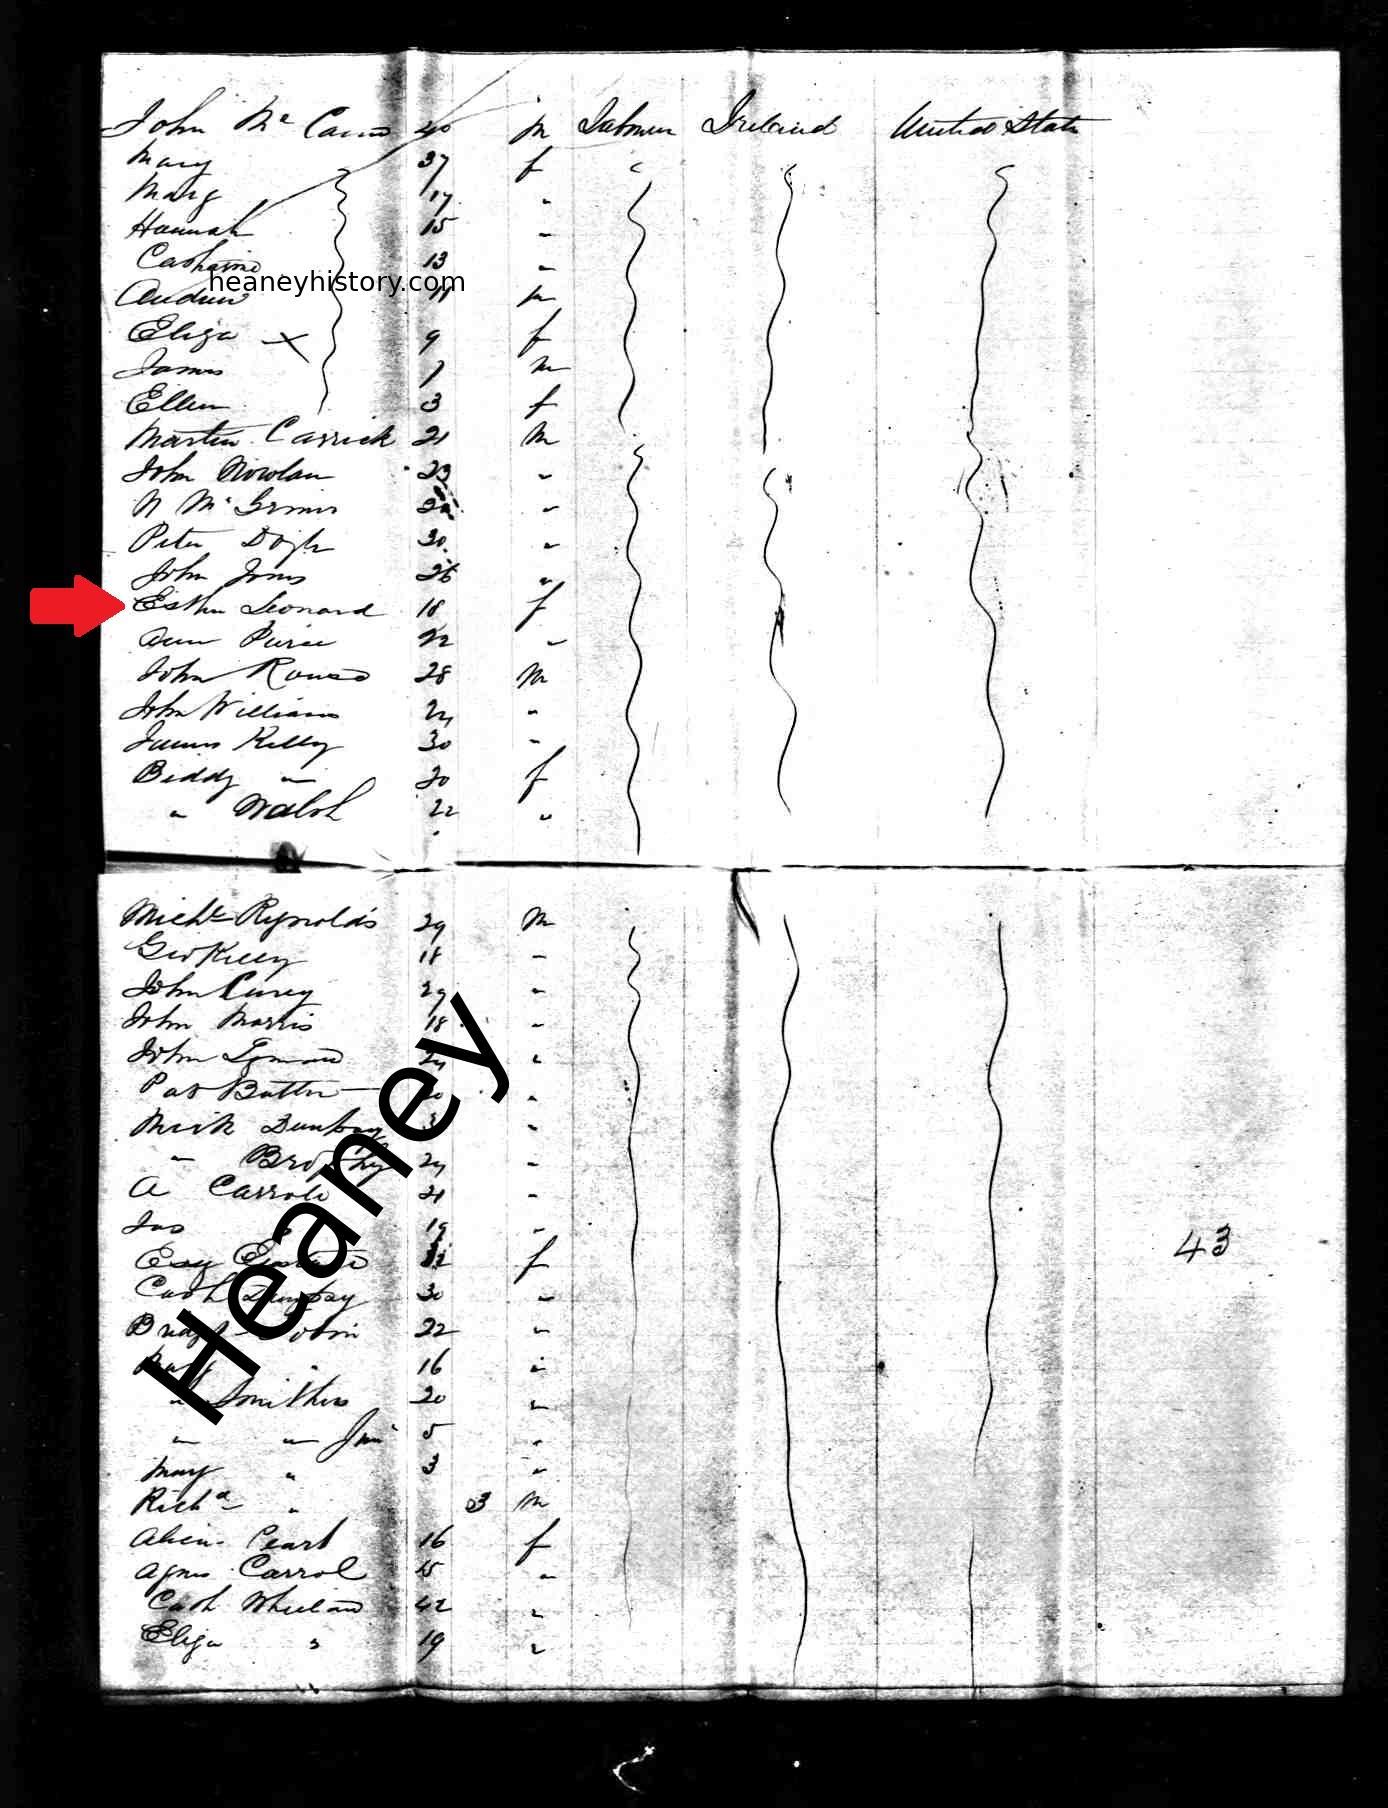 John Mc Cann 40 m Labourer Ireland United States
Mary 37 f
Mary 17 "
Hannah 15 "
Catharine 13 "
heaneyhistory.com
Andrew 11 m
Eliza 9 f
James 7 m
Ellen 3 f
Martin Carrick 21 m
John Nowlan 23 "
N Mc "
Peter Doyle 30 "
John Jones 26 "
Esther Leonard 18 f
Ann Pierce 22 "
John Rouse 28 m
John Williams "
James Kelly 30 "
Biddy " 20 f
" Walsh 22 "
Michl Reynolds 29 m
Geo Kelly 18 "
John Carey 29 "
John Morris 18 "
John "
Pat Butler "
Mick Dunphy "
" Brophy "
A Carroll 21 "
Jas 19 "
f
Cath Dunphy 30 "
Bridgt 22 "
16 "
" Smithers 20 "
" " Jun 5 "
Mary " 3 "
Richd " 03 m
Pearl 16 f
Agnes Carrol 15 "
Cath Whelan 42 "
Eliza " 19 "
43
Heaney